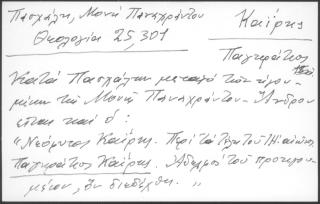 Πασχάλη, Μονή Παναχράντου
Θεολογία 25, 301
Καΐρης
Παγκράτιος
Κατά Πασχάλην μεταξύ των ηγου-
μένων της Μονής Παναχράντου - Άνδρου
είναι και ο:
"Νεόφυτος Καΐρης. Περί τα τέλη του ΙΗ αιώνος
Παγκράτιος Καΐρης. Αδελφός του προηγου-
μένου, ον διεδέχθη."